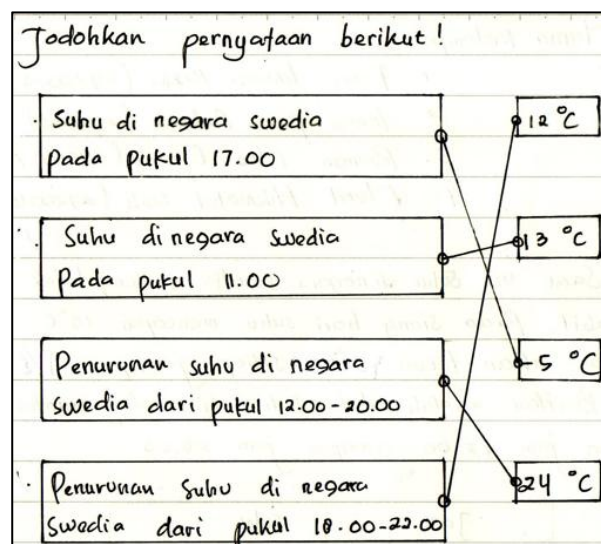 Jodohkan pernyataan berikut!
Suhu di negara swedia
pada pukul 17.00
12 °C
Suhu di negara Swedia
Pada pukul 11.00
13 °C
Penurunan suhu di negara
swedia dari pukul 12.00-20.00
-5 °C
Penurunan Suhu di negara
Swedia dari pukul 18.00-22.00
24 °C